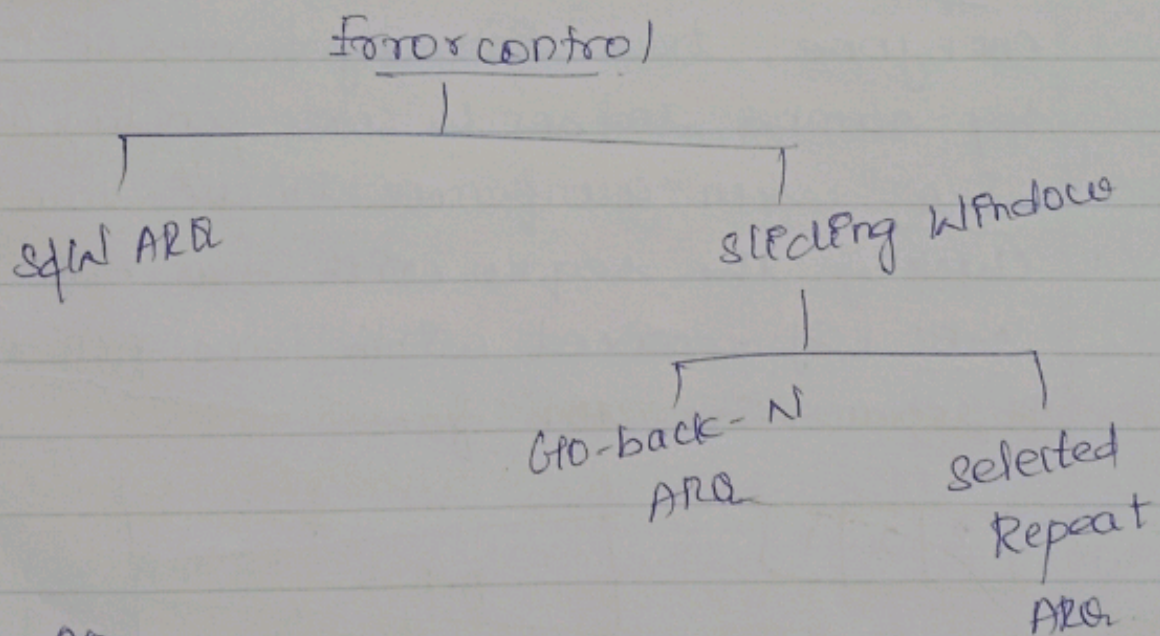 Error control
S&W ARQ
Sliding Window
Go-back-N
ARQ
Selected
Repeat
ARQ